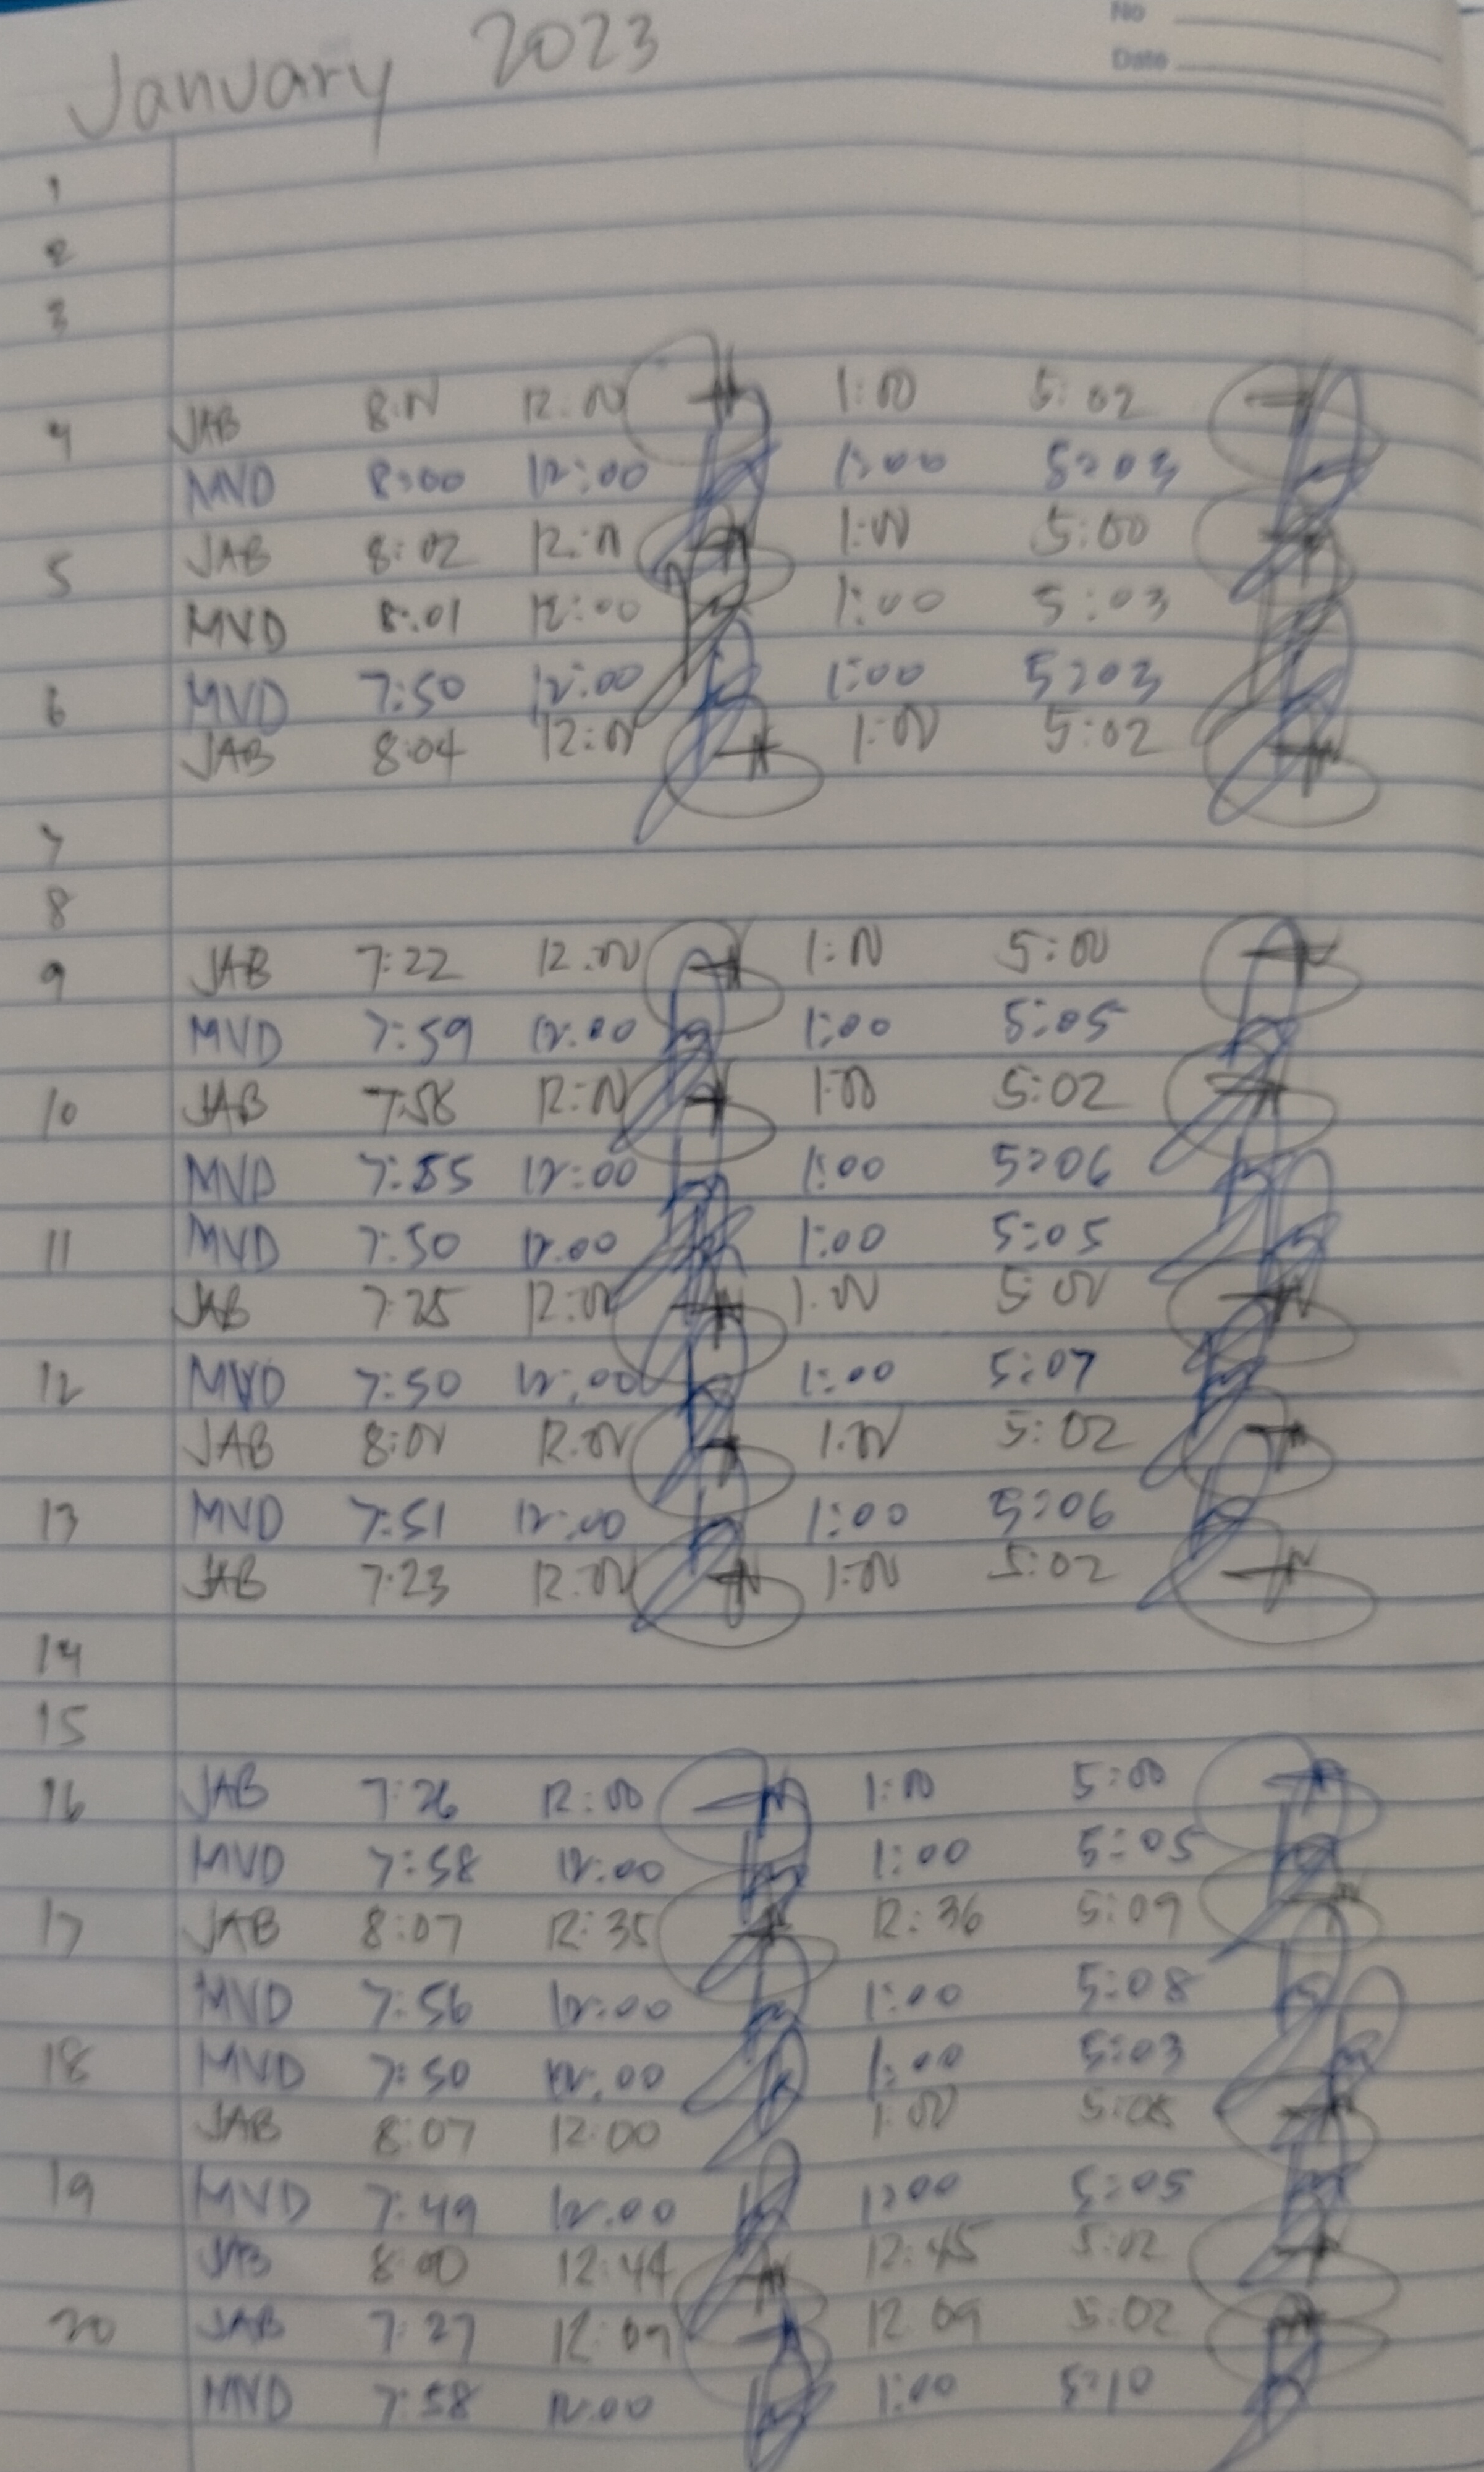 No
Date
January 2023
1
2
3
4 JAB 8:00 12:00 1:00 5:02
MVD 8:00 12:00 1:00 5:03
5 JAB 8:02 12:00 1:00 5:00
MVD 8:01 12:00 1:00 5:03
6 MVD 7:50 12:00 1:00 5:03
JAB 8:04 12:00 1:00 5:02
7
8
9 JAB 7:22 12:00 1:00 5:00
MVD 7:59 12:00 1:00 5:05
10 JAB 7:58 12:00 1:00 5:02
MVD 7:55 12:00 1:00 5:06
11 MVD 7:50 12:00 1:00 5:05
JAB 7:25 12:00 1:00 5:00
12 MVD 7:50 12:00 1:00 5:07
JAB 8:00 12:00 1:00 5:02
13 MVD 7:51 12:00 1:00 5:06
JAB 7:23 12:00 1:00 5:02
14
15
16 JAB 7:26 12:00 1:00 5:00
MVD 7:58 12:00 1:00 5:05
17 JAB 8:07 12:35 12:36 5:09
MVD 7:56 12:00 1:00 5:08
18 MVD 7:50 12:00 1:00 5:03
JAB 8:07 12:00 1:00 5:08
19 MVD 7:49 12:00 1:00 5:05
JAB 8:00 12:44 12:45 5:02
20 JAB 7:27 12:09 12:09 5:02
MVD 7:58 12:00 1:00 5:10